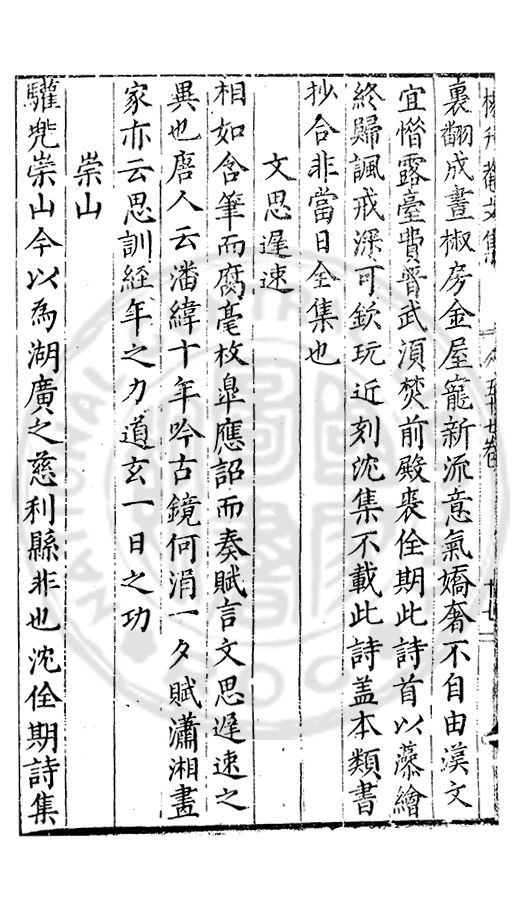 裏翻成晝椒房金屋寵新流意氣嬌奢不自由漢文
宜惜露臺費晉武須焚前殿裘佺期此詩首以藻繪
終歸諷戒深可欽玩近刻沈集不載此詩盖本類書
抄合非當日全集也
文思遲速
相如含筆而腐毫枚臯應詔而奏賦言文思遲速之
異也唐人云潘緯十年吟古鏡何涓一夕賦瀟湘畫
家亦云思訓經年之力道玄一日之功
崇山
驩兠崇山今以為湖廣之慈利縣非也沈佺期詩集